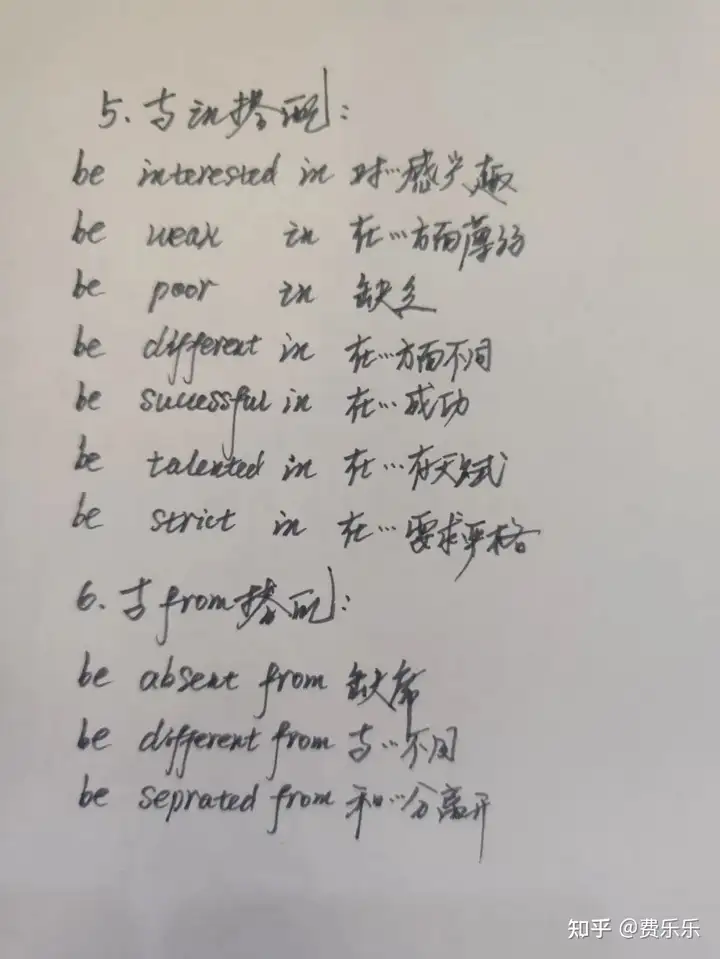 5. 与in搭配:
be interested in 对…感兴趣
be weak in 在…方面薄弱
be poor in 缺乏
be different in 在…方面不同
be successful in 在…成功
be talented in 在…有天赋
be strict in 在…要求严格
6. 与from搭配:
be absent from 缺席
be different from 与…不同
be seprated from 和…分离开
知乎 @费乐乐